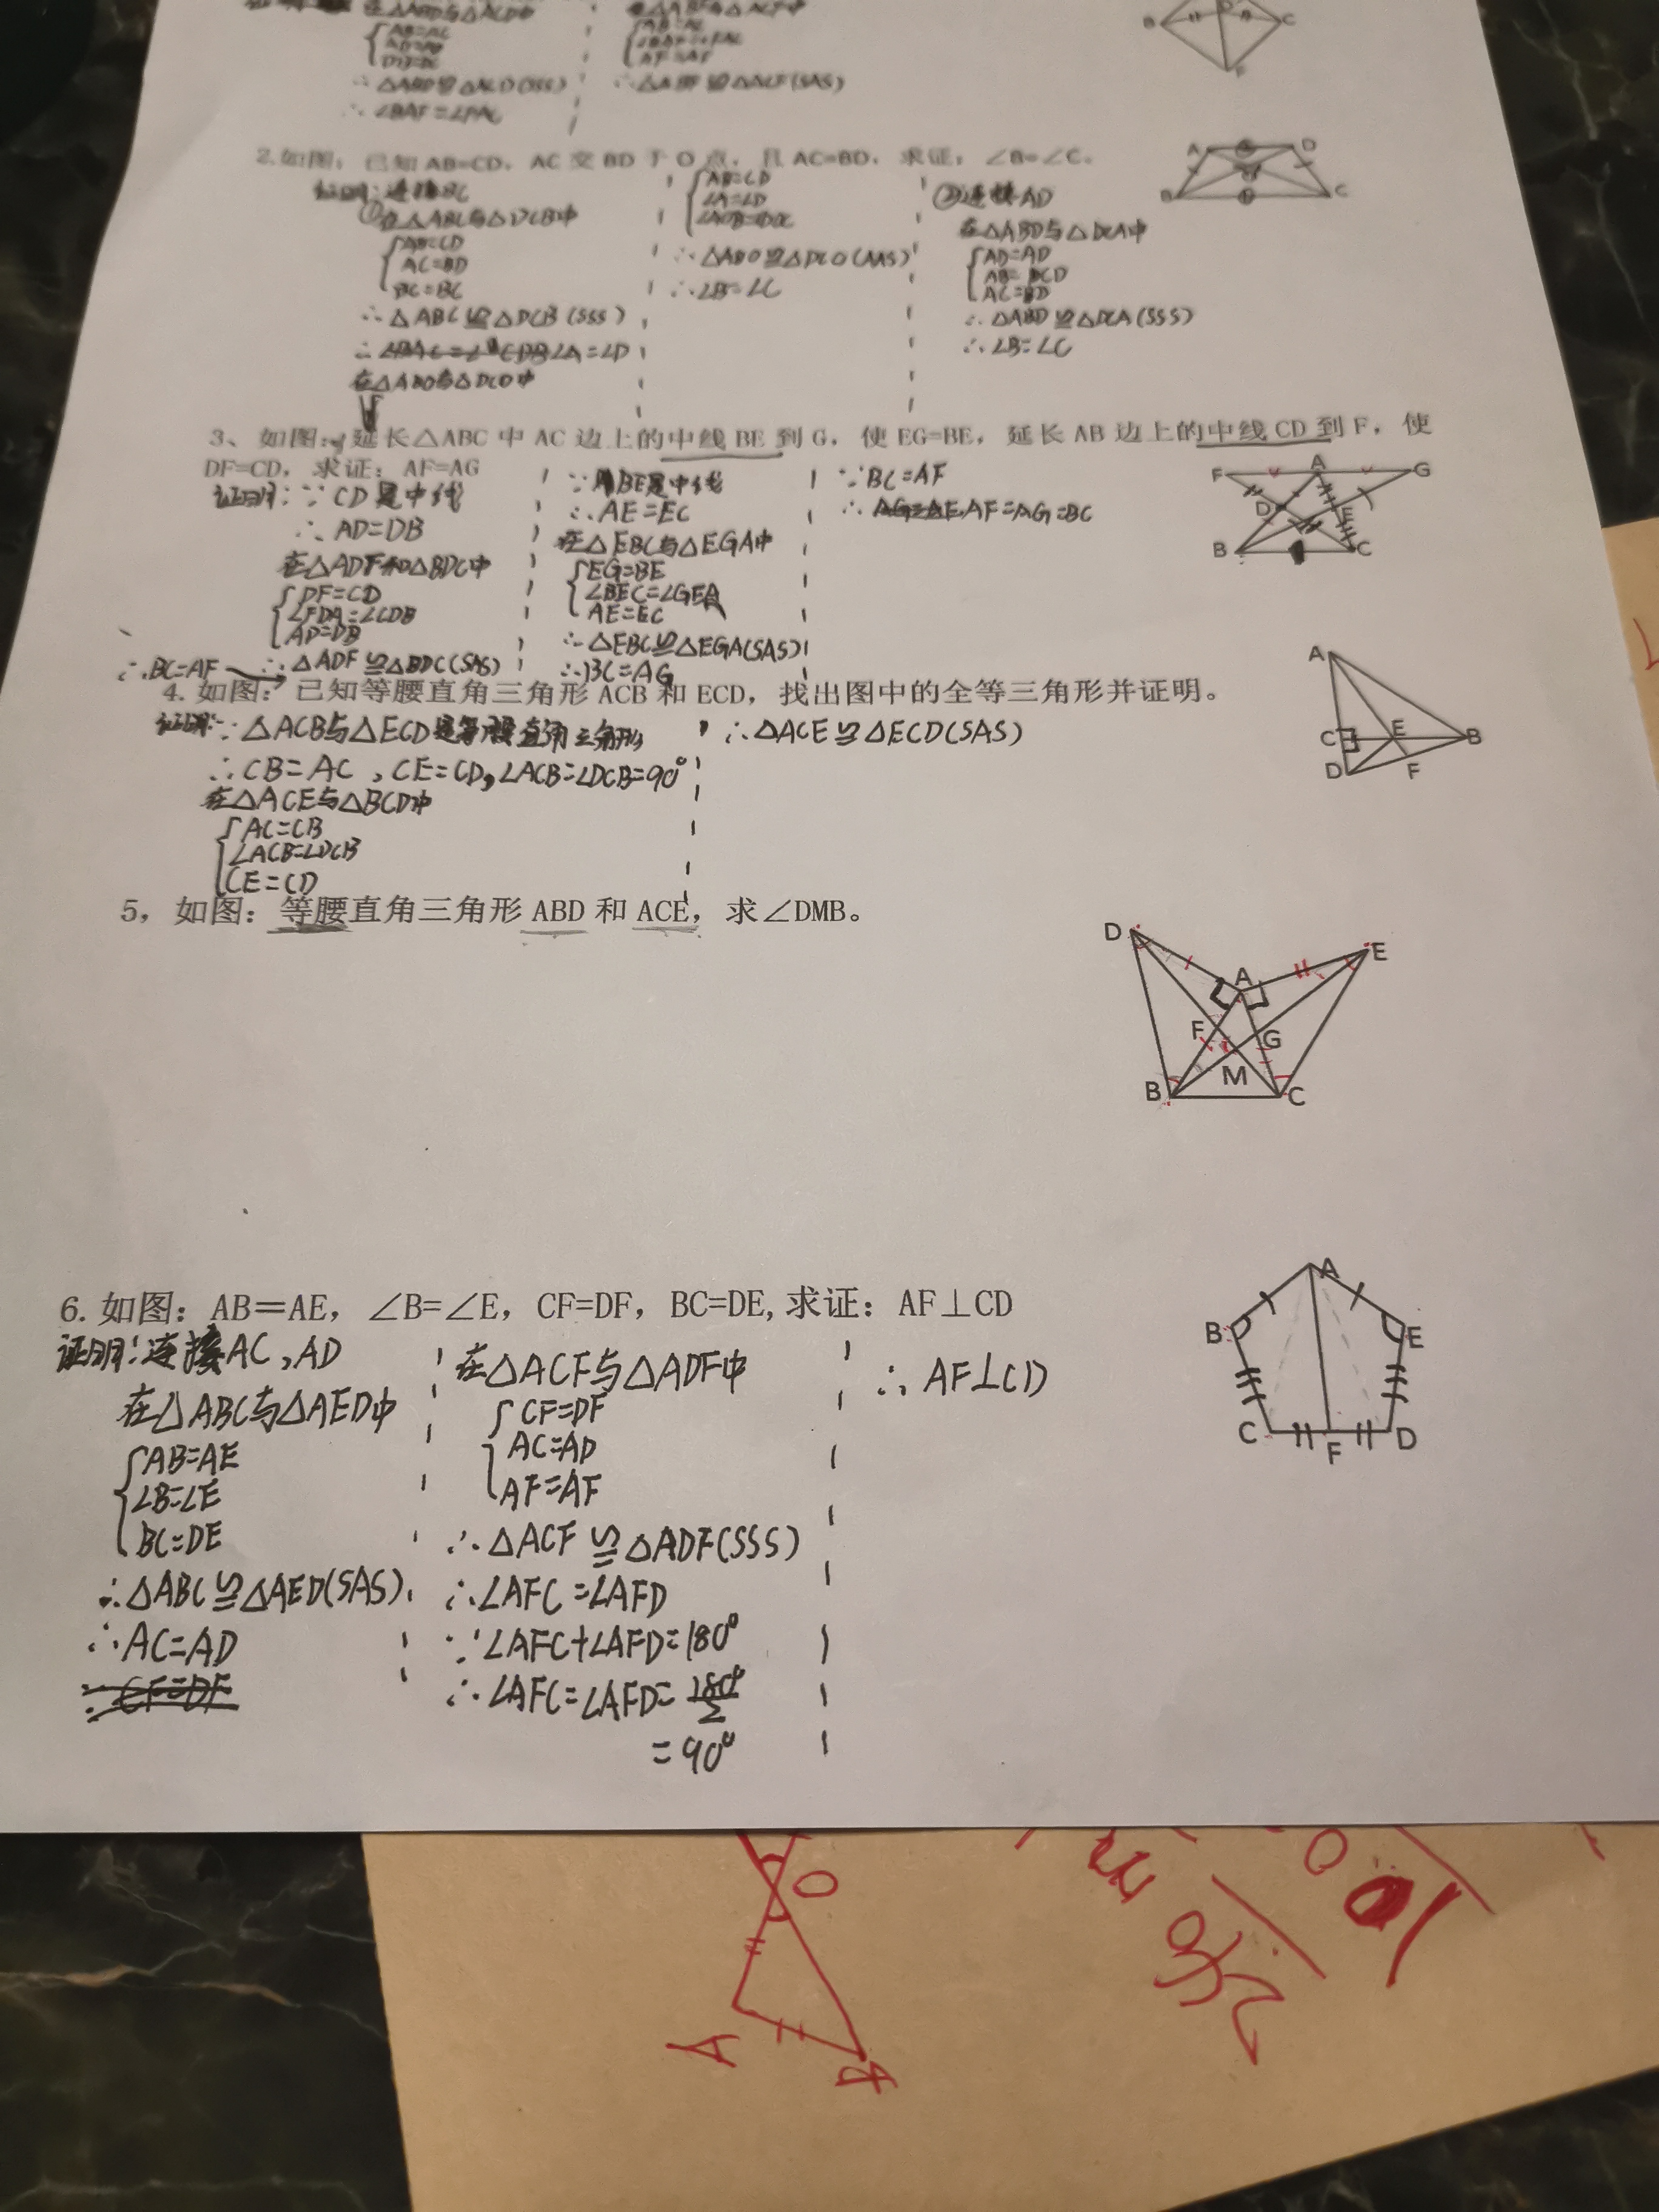 在△ABD与△ACD中
AB=AC
AD=AD
∴△ABD≌△ACD(SSS)
AB=AC
AF=AF
∴△ABF≌△ACF(SAS)
B
D
C
F
2.如图，已知 AB=CD，AC 交 BD 于 O 点，且 AC=BD，求证：∠B=∠C。
证明:连接BC
①在△ABC与△DCB中
AB=CD
AC=BD
BC=BC
∴△ABC≌△DCB(SSS)
∴∠A=∠D
在△ABO与△DCO中
AB=CD
∠A=∠D
∠AOB=∠DOC
∴△ABO≌△DCO(AAS)
∴∠B=∠C
②连接AD
在△ABD与△DCA中
AD=AD
AB=CD
AC=BD
∴△ABD≌△DCA(SSS)
∴∠B=∠C
A
D
B
C
3、如图：延长△ABC 中 AC 边上的中线 BE 到 G，使 EG=BE，延长 AB 边上的中线 CD 到 F，使
DF=CD，求证：AF=AG
证明:∵CD是中线
∴AD=DB
在△ADF和△BDC中
DF=CD
∠FDA=∠CDB
AD=DB
∴△ADF≌△BDC(SAS)
∴BC=AF
∵BE是中线
∴AE=EC
在△EBC与△EGA中
EG=BE
∠BEC=∠GEA
AE=EC
∴△EBC≌△EGA(SAS)
∴BC=AG
∵BC=AF
∴AF=AG=BC
F
A
G
D
E
B
C
4. 如图：已知等腰直角三角形 ACB 和 ECD，找出图中的全等三角形并证明。
证明:∵△ACB与△ECD是等腰直角三角形
∴CB=AC，CE=CD，∠ACB=∠DCB=90°
在△ACE与△BCD中
AC=CB
∠ACB=∠DCB
CE=CD
∴△ACE≌△ECD(SAS)
A
C
E
B
D
F
5，如图：等腰直角三角形 ABD 和 ACE，求∠DMB。
D
E
A
F
G
M
B
C
6. 如图：AB＝AE，∠B=∠E，CF=DF，BC=DE,求证：AF⊥CD
证明:连接AC,AD
在△ABC与△AED中
AB=AE
∠B=∠E
BC=DE
∴△ABC≌△AED(SAS)
∴AC=AD
∵CF=DF
在△ACF与△ADF中
CF=DF
AC=AD
AF=AF
∴△ACF≌△ADF(SSS)
∴∠AFC=∠AFD
∵∠AFC+∠AFD=180°
∴∠AFC=∠AFD=180°/2
=90°
∴AF⊥CD
A
B
E
C
F
D
O
A